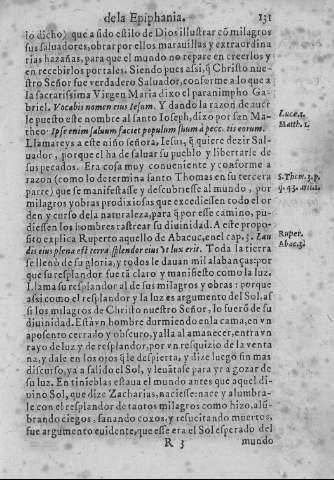 de la Epiphania. 131
lo dicho) que a sido estilo de Dios illustrar cõ milagros
sus saluadores, obrar por ellos marauillas y extraordina
rias hazañas, para que el mundo no repare en creerlos y
en recebirlos por tales. Siendo pues assi, q̃ Christo nue-
stro Señor fue verdadero Saluador, conforme a lo que a
la sacratissima Virgen Maria dixo el paranimpho Ga-
briel. Vocabis nomen eius Iesum. Y dando la razon de auer
le puesto este nombre al santo Ioseph, dixo por san Ma-
theo: Ipse enim saluum faciet populum suum à pecc. tis eorum.
Llamareys a este niño señora, Iesus, q̃ quiere dezir Sal-
uador, porque el ha de saluar su pueblo y libertarle de
sus pecados. Era cosa muy conueniente y conforme a
razon (como lo determina santo Thomas en su tercera
parte) que se manifestasse y descubriesse al mundo, por
milagros y obras prodixiosas que excediessen todo el or
den y curso de la naturaleza, para q̃ por esse camino, pu-
diessen los hombres rastrear su diuinidad. A este propo-
sito explica Ruperto aquello de Abacuc, en el cap. 3. Lau
dis eius plena est terra splendor eius vt lux erit. Toda la tierra
se llenò de su gloria, y todos le dauan mil alabanças: por
que su resplandor fue tã claro y manifiesto como la luz.
Llama su resplandor al de sus milagros y obras: porque
assi como el resplandor y la luz es argumento del Sol, as
si los milagros de Christo nuestro Señor, lo fuerõ de su
diuinidad. Està vn hombre durmiendo en la cama, en vn
aposento cerrado y obscuro, ya lla al amanecer, entra vn
rayo de luz y de resplandor, por vn resquizio de la venta
na, y dale en los ojos q̃ le despierta, y dize luego sin mas
discurso, ya a salido el Sol, y leuãtase para yr a gozar de
su luz. En tinieblas estaua el mundo antes que aquel di-
uino Sol, que dize Zacharias, naciesse: nace y alumbra-
le con el resplandor de tantos milagros como hizo, alũ-
brando ciegos, sanando coxos, y resucitando muertos,
fue argumento euidente, que esse era el Sol esperado del
R 3 mundo
Lucæ. 1.
Matth. 1.
S. Thom. 3. p.
q. 43.
Ruper.
Abac. 3.